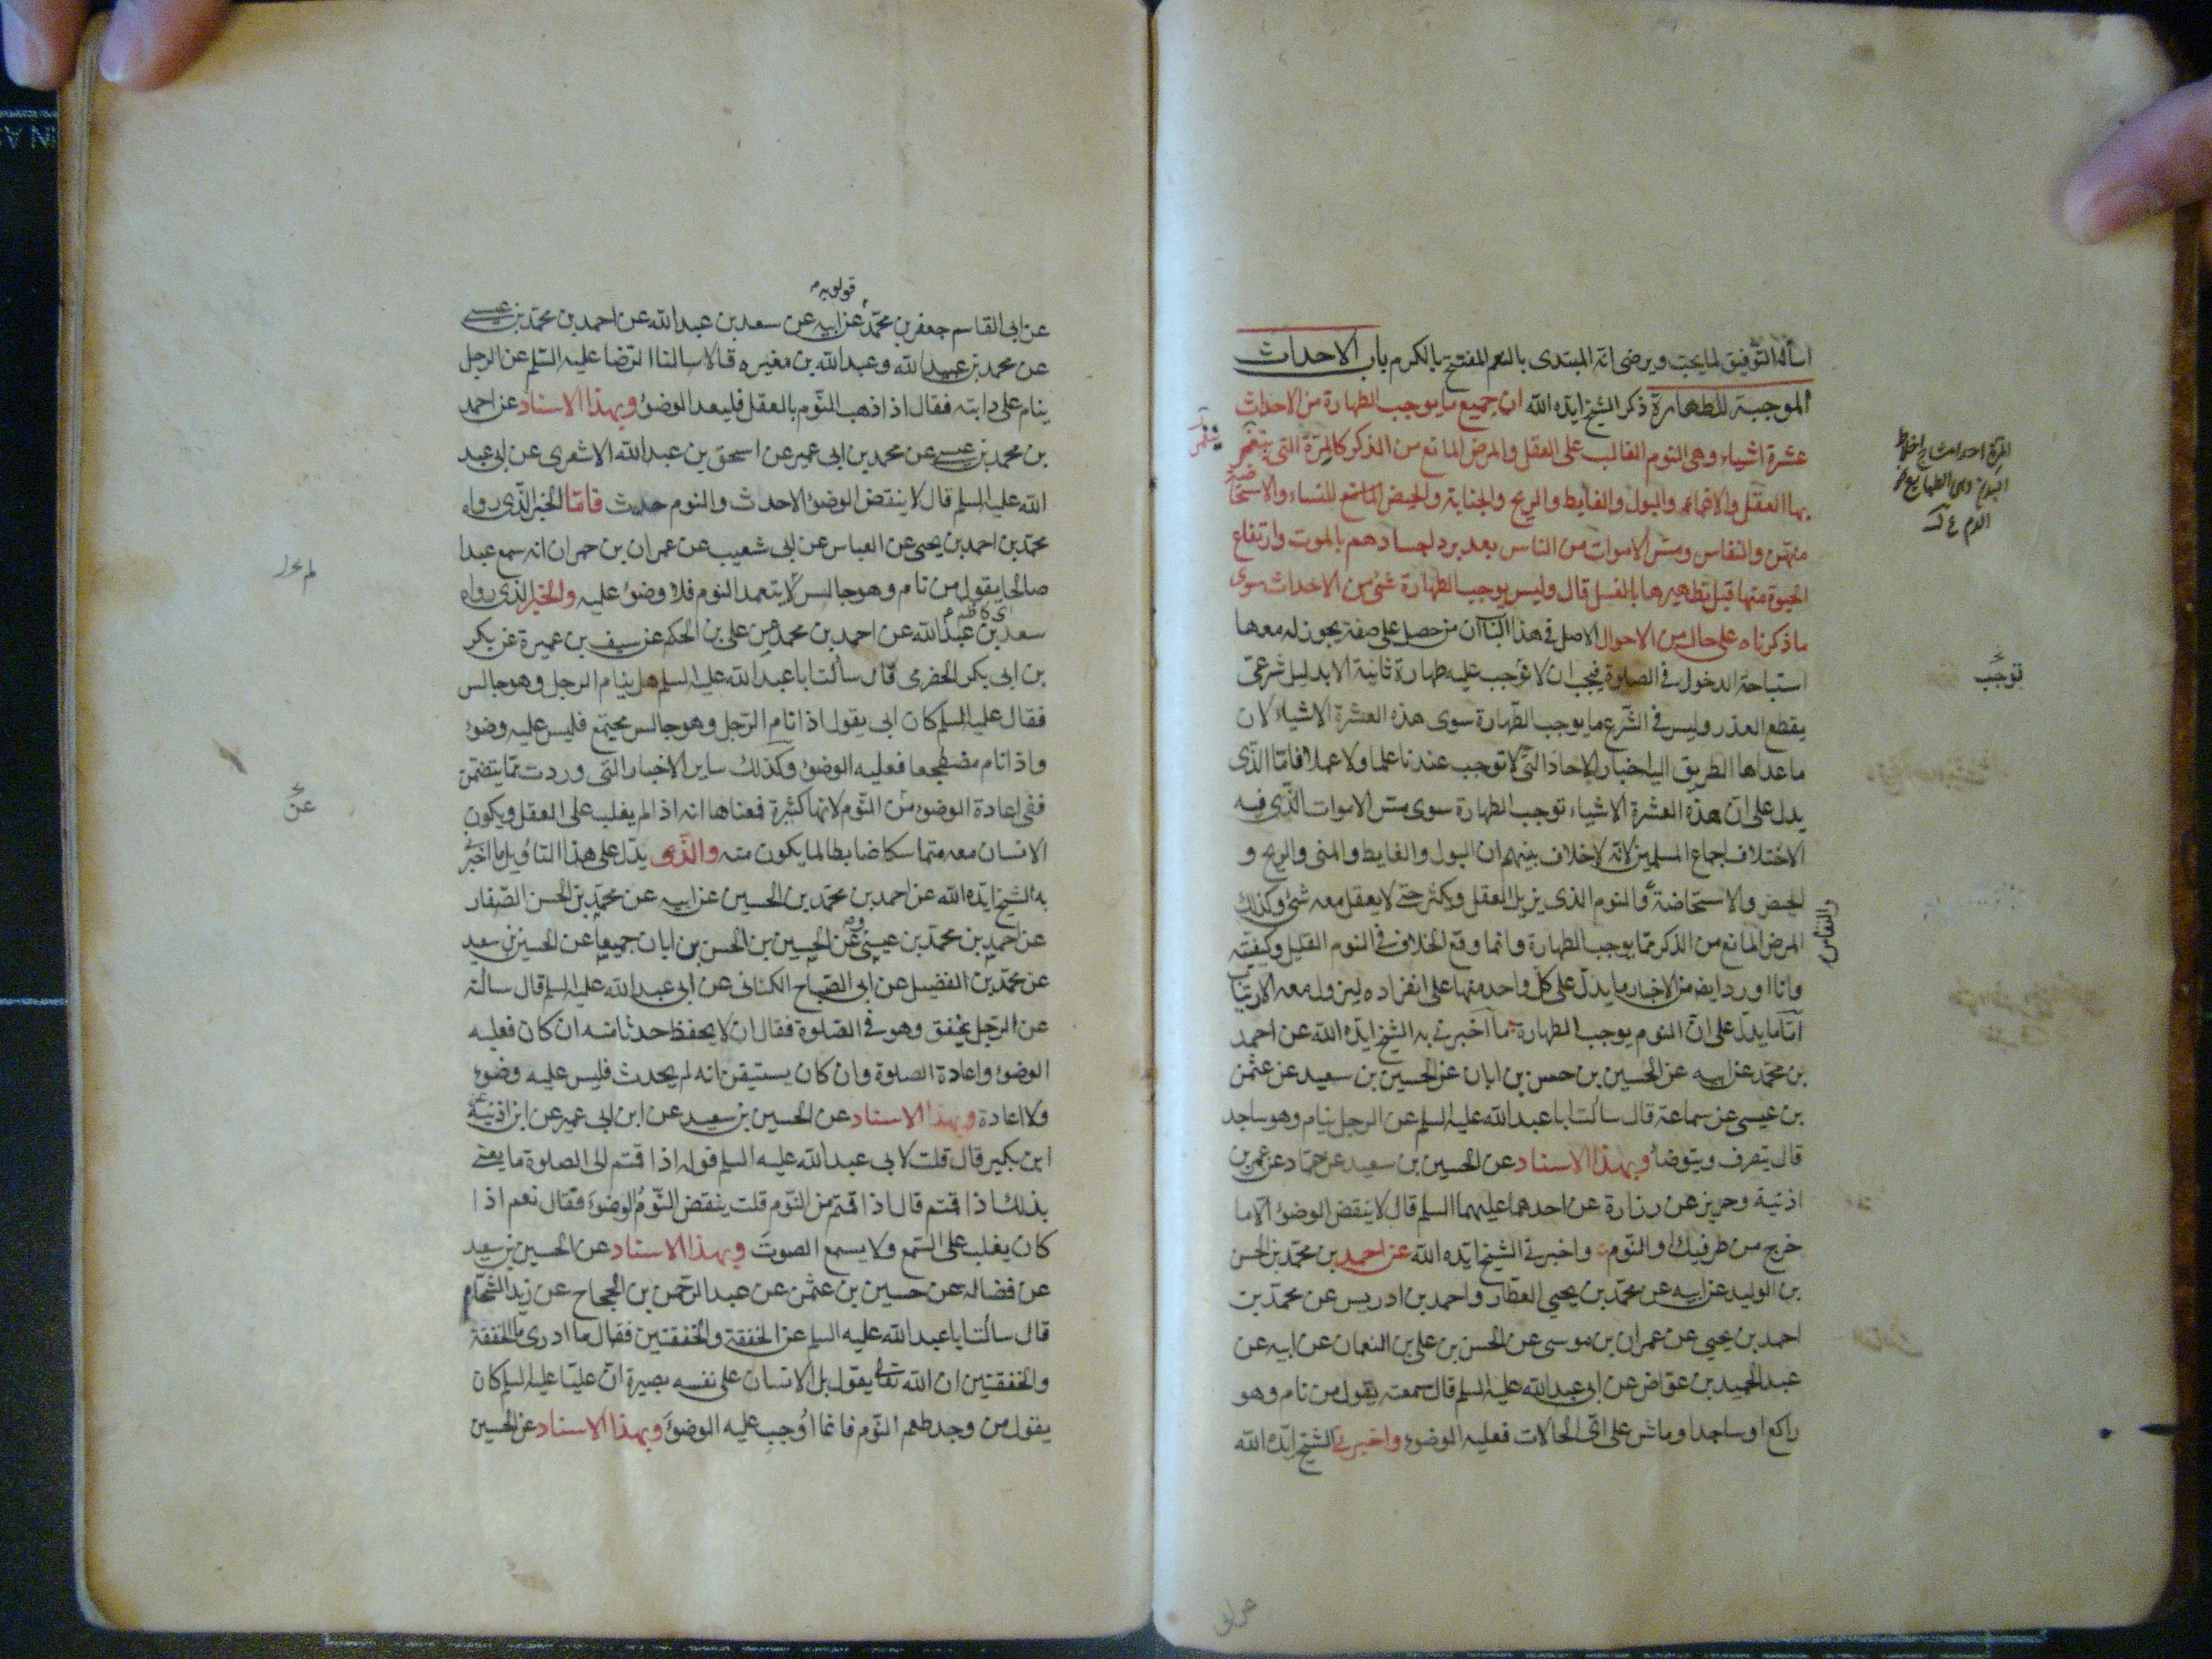 اسأله التوفيق لما يحب ويرضى انه المبتدى بالنعم المفتتح بالكرم باب الاحداث
الموجبة للطهارة ذكر الشيخ ايده الله ان جميع ما يوجب الطهارة من الاحداث
عشرة اشياء وهى النوم الغالب على العقل والمرض المانع من الذكر كالمرة التى ينغمر
بها العقل والاغماء والبول والغايط والريح والجنابة والحيض المانع للنساء والاستحاضة
منهن والنفاس ومس الاموات من الناس بعد برد اجسادهم بالموت وارتفاع
الحيوة منها قبل تطهيرها بالغسل قال وليس يوجب الطهارة شئ من الاحداث سوى
ما ذكرناه على حال من الاحوال الاصل فى هذا الباب ان من حصل على صفة يجوز له معها
استباحة الدخول فى الصلوة فيجب ان لا توجب عليه طهارة ثانية الا بدليل شرعى
يقطع العذر وليس فى الشرع ما يوجب الطهارة سوى هذه العشرة الاشياء لان
ما عداها الطريق اليها اخبار الاحاد التى لا توجب عندنا علما ولا عملا فاما الذى
يدل على ان هذه العشرة الاشياء توجب الطهارة سوى مس الاموات الذى فيه
الاختلاف اجماع المسلمين لانه لاخلاف بينهم ان البول والغايط والمنى والريح و
الحيض والاستحاضة والنوم الذى يزيل العقل ويكثر حتى لا يعقل معه شئ وكذلك
والنفاس
المرض المانع من الذكر مما يوجب الطهارة وانما وقع الخلاف فى النوم القليل وكيفيته
وانا اورد ايضا من الاخبار ما يدل على كل واحد منها على انفراده ليزول معه الارتياب
اما ما يدل على ان النوم يوجب الطهارة ما اخبرنى به الشيخ ايده الله عن احمد
بن محمد عن ابيه عن الحسين بن حسن بن ابان عن الحسين بن سعيد عن عثمن
بن عيسى عن سماعة قال سالت ابا عبد الله عليه السلم عن الرجل ينام وهو ساجد
قال ينصرف ويتوضأ وبهذا الاسناد عن الحسين بن سعيد عن حماد عن عمر بن
اذنية وحريز عن زرارة عن احدهما عليهما السلم قال لا ينقض الوضؤ الا ما
خرج من طرفيك او النوم واخبرنى الشيخ ايده الله عن احمد بن محمد بن الحسن
بن الوليد عن ابيه عن محمد بن يحيى العطار واحمد بن ادريس عن محمد بن
احمد بن يحيى عن عمران بن موسى عن الحسن بن على بن النعمان عن ابيه عن
عبد الحميد بن عواض عن ابى عبد الله عليه السلم قال سمعته يقول من نام وهو
راكع او ساجد او ماش على اى الحالات فعليه الوضوء واخبرنى الشيخ ايده الله
توجب
قولويه
عن ابى القاسم جعفر بن محمد عن ابيه عن سعد بن عبد الله عن احمد بن محمد بن عيسى
عن محمد بن عبيد الله وعبد الله بن مغيره قالا سالنا الرضا عليه السلم عن الرجل
ينام على دابته فقال اذا ذهب النوم بالعقل فليعد الوضؤ وبهذا الاسناد عن احمد
بن محمد بن عيسى عن محمد بن ابى عمير عن اسحق بن عبد الله الاشعرى عن ابى عبد
الله عليه السلم قال لا ينقض الوضؤ الا حدث والنوم حدث فاما الخبر الذى رواه
محمد بن احمد بن يحيى عن العباس عن ابى شعيب عن عمران بن حمران انه سمع عبدا
صالحا يقول من نام وهو جالس لا يتعمد النوم فلا وضؤ عليه والخبر الذى رواه
اى كاظم
سعد بن عبد الله عن احمد بن محمد عن على بن الحكم عن سيف بن عميرة عن بكر
بن ابى بكر الحضرمى قال سألت ابا عبد الله عليه السلم هل ينام الرجل وهو جالس
فقال عليه السلم كان ابى يقول اذا نام الرجل وهو جالس مجتمع فليس عليه وضوء
واذا نام مضطجعا فعليه الوضؤ وكذلك ساير الاخبار التى وردت مما يتضمن
نفى اعادة الوضوء من النوم لانها كثيرة فمعناها انه اذا لم يغلب على العقل ويكون
الانسان معه متماسكا ضابطا لما يكون منه والذى يدل على هذا التأويل ما اخبرنى
به الشيخ ايده الله عن احمد بن محمد بن الحسين عن ابيه عن محمد بن الحسن الصفار
عن احمد بن محمد بن عيسى وعن الحسين بن الحسن بن ابان جميعا عن الحسين بن سعيد
عن محمد بن الفضيل عن ابى الصباح الكنانى عن ابى عبد الله عليه السلم قال سالته
عن الرجل يخفق وهو فى الصلوة فقال ان لا يحفظ حدثا منه ان كان فعليه
الوضوء واعادة الصلوة وان كان يستيقن انه لم يحدث فليس عليه وضوء
ولا اعادة وبهذا الاسناد عن الحسين بن سعيد عن ابن ابى عمير عن ابن اذنية عن
ابن بكير قال قلت لابى عبد الله عليه السلم قوله اذا قمتم الى الصلوة ما يعنى
بذلك اذا قمتم قال اذا قمتم من النوم قلت ينقض النوم الوضوء فقال نعم اذا
كان يغلب على السمع ولا يسمع الصوت وبهذا الاسناد عن الحسين بن سعيد
عن فضاله عن حسين بن عثمن عن عبد الرحمن بن الحجاج عن زيد الشحام
قال سالت ابا عبد الله عليه السلم عن الخفقة والخفقتين فقال ما ادرى ما الخفقة
والخفقتين ان الله تعالى يقول بل الانسان على نفسه بصيرة ان عليا عليه السلم كان
يقول من وجد طعم النوم فانما اوجب عليه الوضؤ وبهذا الاسناد عن الحسين
عن